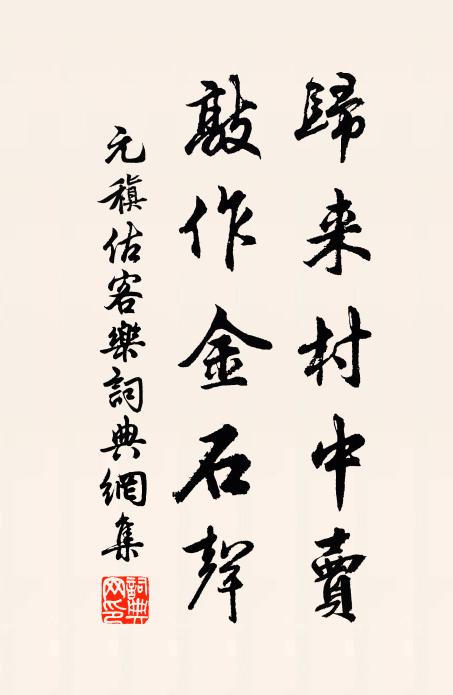 歸来村中賣
敲作金石聲
元稹估客樂詞典網集
詞典网印